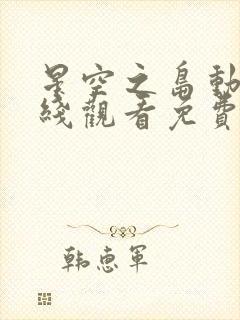 星空之島動
綫觀看免費
韩惠军